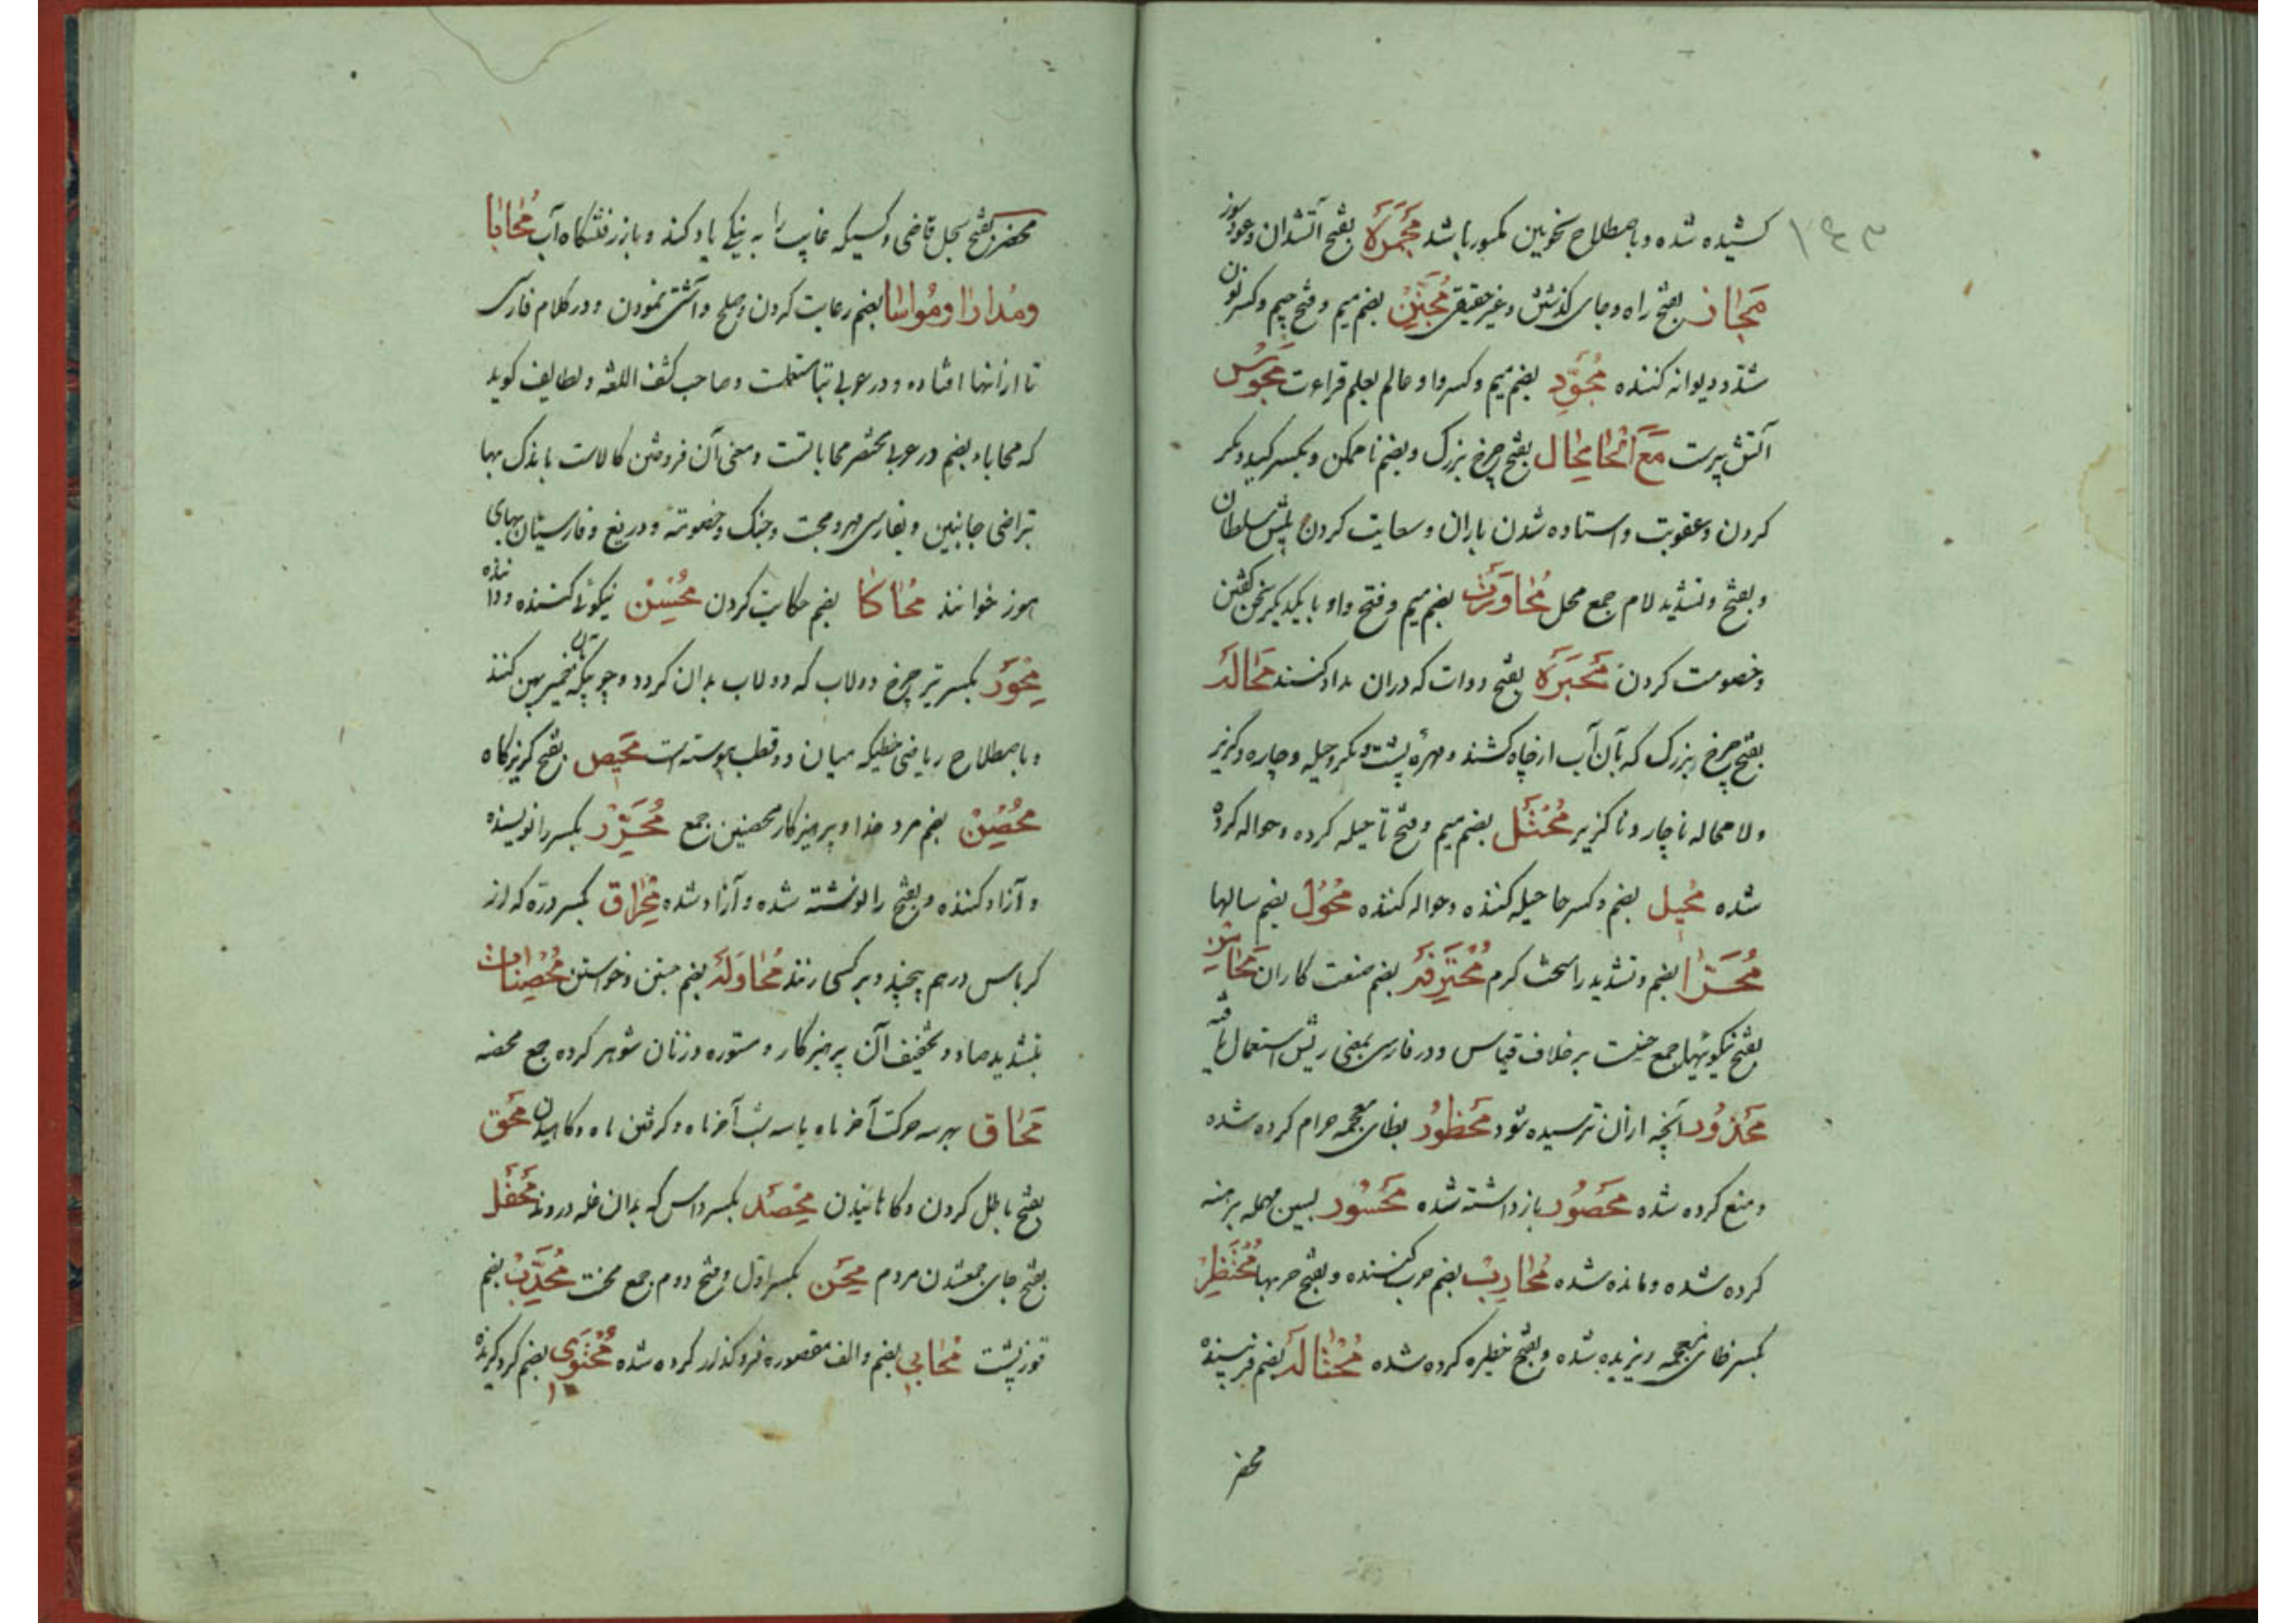 کشیده شده و باصطلاح نحویین مکسور باشد مَجمَرَه بفتح آتشدان و عود سوز
مَجاز بفتح راه و جای گذشتن و غیر حقیقی مُجَنِّن بضم میم و فتح جیم و کسر نون
مشدد دیوانه کننده مُجَوِّد بضم میم و کسر واو عالم بعلم قراءت مَجوس
آتش پرست مَعَ الحا مِحال بفتح چرخ بزرگ و بضم ناممکن و بکسر کید و مکر
کردن و عقوبت و استاده شدن باران و سعایت کردن پیش سلطان
و بفتح و تشدید لام جمع محل مُحاوَرَت بضم میم و فتح واو با یکدیگر سخن گفتن
و خصومت کردن مَحبَرَه بفتح دوات که دران مداد کنند مَحالَه
بفتح چرخ بزرگ که بآن آب از چاه کشند و مهره پشت و مکر و حیله و چاره و گزیر
و لا محاله ناچار و ناگزیر مُحتَل بضم میم و فتح تا حیله کرده و حواله کرده
شده مُحیل بضم و کسر حا حیله کننده و حواله کننده مُحوُل بضم سالها
بضم و تشدید را سخت گرم مُحتَرِفَه بضم صنعت کاران مَحاسِن
بفتح نیکوئیها جمع حسن برخلاف قیاس و در فارسی بمعنی ریش استعمال یافته
مَحذُور آنچه ازان ترسیده شود مَحظُور بظای معجمه حرام کرده شده
و منع کرده شده مَحصُور باز داشته شده مَحسُور بسین مهمله برهنه
کرده شده و مانده شده مُحارِب بضم حرب کننده و بفتح حربها مُحتَظِر
بکسر ظای معجمه ریزیده شده و بفتح خطیره کرده شده مُحتالَه بضم فریبنده
محضر
محضر بفتح سجل قاضی و کسیکه غایب را به نیکی یاد کند و باز رفتنگاه آب مُحابا
و مُدارا و مُواسا بضم رعایت کردن و صلح و آشتی نمودن و در کلام فارسی
تا ازانها افتاده و در عربی بتا مستعملست و صاحب کشف اللغه و لطایف گوید
که محاباء بضم در عربی مختصر محاباتست و معنی آن فروختن کالاست باندک بها
بتراضی جانبین و بفارسی مهر و محبت و جنگ و خصومت و دریغ و فارسیان بهای
هوز خوانند مُحاکا بضم حکایت کردن مُحسِن نیکوئی کننده و داننده
مِحوَر بکسر تیر چرخ دولاب که دولاب بدان گردد و چوبیکه بآن خمیر پهن کنند
و باصطلاح ریاضی خطیکه میان دو قطب پیوسته است مَحیص بفتح گریزگاه
مُحصِن بضم مرد خدا و پرهیزکار محصنین جمع مُحَرِّر بکسر را نویسنده
و آزاد کننده و بفتح را نوشته شده و آزاد شده مِحراق بکسر دره که از
کرباس درهم پیچند و بر کسی زنند مُحاوَلَه بضم جستن و خواستن مُحصِنات
بتشدید صاد و تخفیف آن پرهیزکار و مستوره و زنان شوهر کرده جمع محصنه
مَحاق بهر سه حرکت آخر ماه یا سه شب آخر ماه و گرفتن ماه و کاهیدن مَحق
بفتح باطل کردن و کاهانیدن مِحصَد بکسر داس که بدان غله دروند مَحفَل
بفتح جای جمع شدن مردم مِحَن بکسر اول و فتح دوم جمع محنت مُحَدَّب بضم
قوز پشت مُحابی بضم و الف مقصوره فرو گذار کرده شده مُحتَوی بضم گرد گیرنده